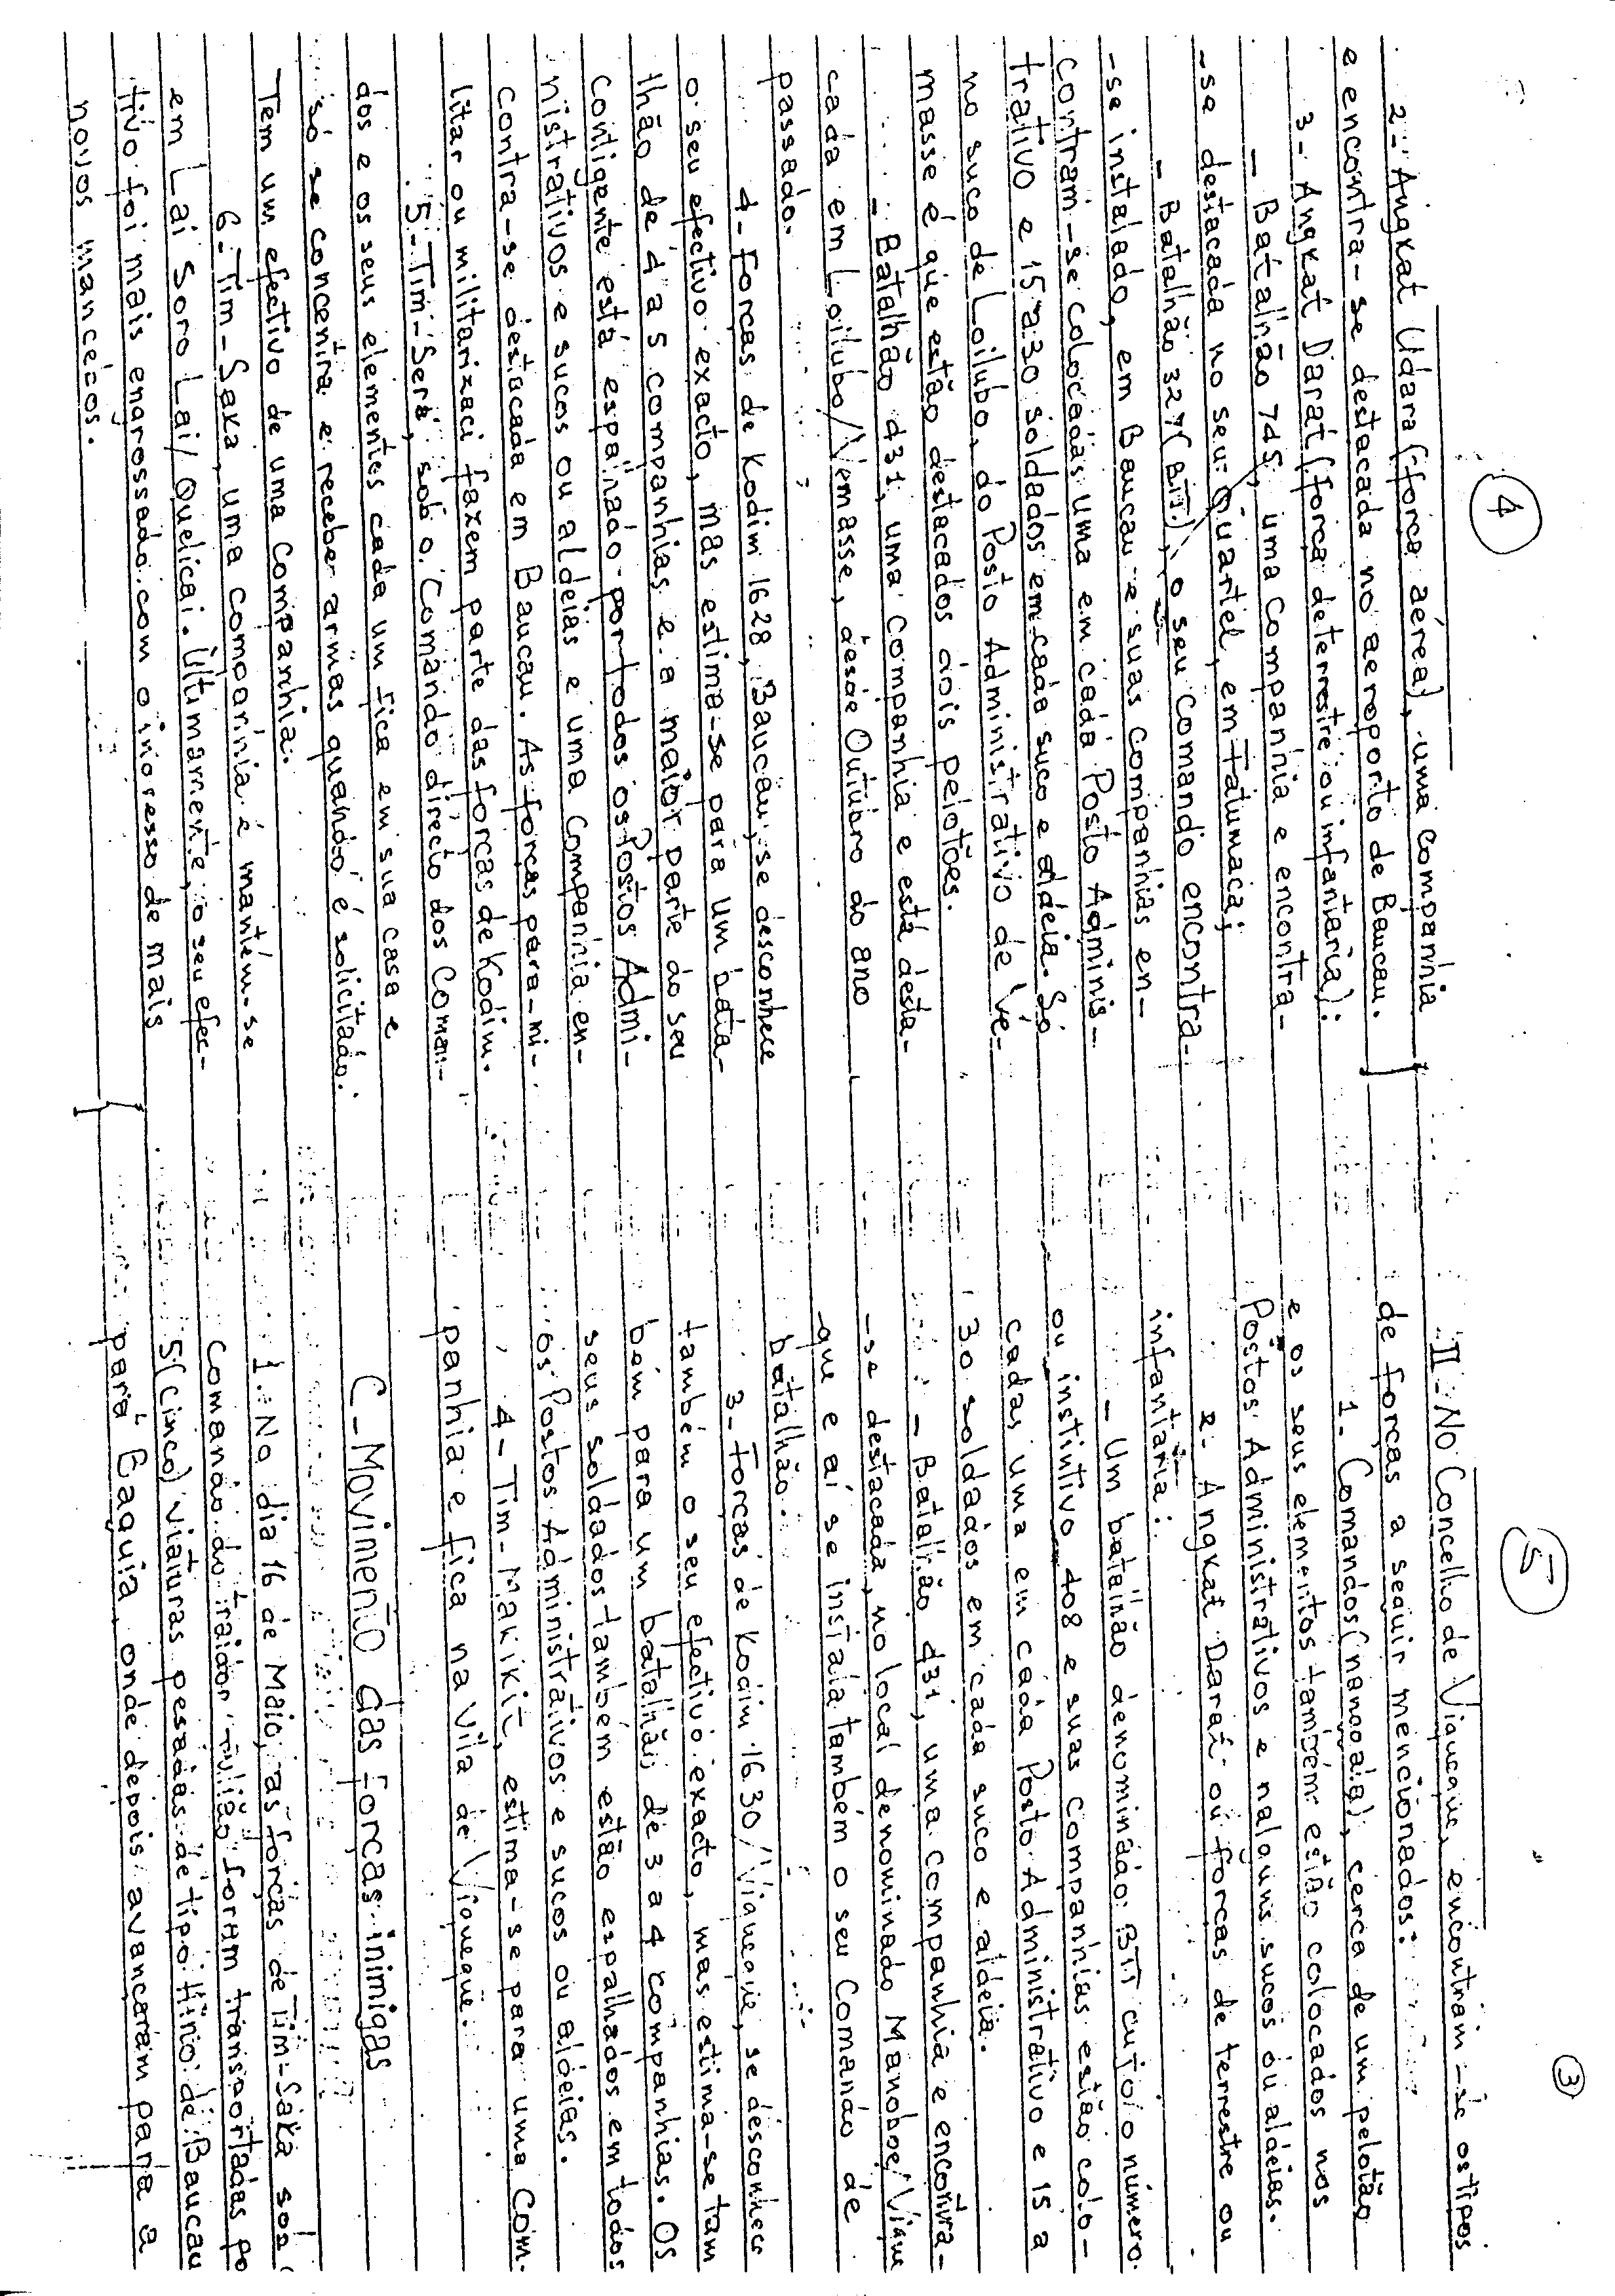 4
2- Angkat Udara (força aérea), uma companhia
e encontra-se destacada no aeroporto de Baucau.
3- Angkat Darat (força de terrestre ou infantaria):
- Batalhão 745, uma companhia e encontra-
-se destacada no seu Quartel, em Fatumaca;
- Batalhão 327 (BTT), o seu Comando encontra-
-se instalado, em Baucau e suas companhias en-
contram-se colocadas uma em cada Posto Adminis-
trativo e 15 a 30 soldados em cada suco e aldeia. Só
no suco de Loilubo, do Posto Administrativo de Ve-
masse é que estão destacados dois pelotões.
- Batalhão 431, uma Companhia e está desta-
cada em Loilubo/Vemasse, desde Outubro do ano
passado.
4- Forças de Kodim 1628, Baucau, se desconhece
o seu efectivo exacto, mas estima-se para um bata-
lhão de 4 a 5 companhias e a maior parte do seu
contigente está espalhado por todos os Postos Admi-
nistrativos e sucos ou aldeias e uma Companhia en-
contra-se destacada em Baucau. As forças para-mi-
litar ou militarizaci fazem parte das forças de Kodim.
5- Tim-Sera, sob o Comando directo dos Coman-
dos e os seus elementos cada um fica em sua casa e
só se concentra e receber armas quando é solicitado.
Tem um efectivo de uma Companhia.
6- Tim-Saka, uma companhia e mantém-se
em Lai Soro Lai/Quelicai. Ultimamente, o seu efec-
tivo foi mais engrossado com o ingresso de mais
novos mancebos.
5
3
II- No Concelho de Viqueque, encontram-se os tipos
de forças a seguir mencionados:
1- Comandos (nanggala), cerca de um pelotão
e os seus elementos também estão colocados nos
Postos Administrativos e nalguns sucos ou aldeias.
2- Angkat Darat ou forças de terrestre ou
infantaria:
- Um batalhão denominado BTT cujo o número
ou instintivo 408 e suas companhias estão colo-
cadas uma em cada Posto Administrativo e 15 a
30 soldados em cada suco e aldeia.
- Batalhão 431, uma companhia e encontra-
-se destacada, no local denominado Manoboe/Vique
que e aí se instala também o seu Comando de
batalhão.
3- Forças de Kodim 1630/Viqueque, se desconhece
também o seu efectivo exacto, mas estima-se tam
bém para um batalhão de 3 a 4 companhias. Os
seus soldados também estão espalhados em todos
os Postos Administrativos e sucos ou aldeias.
4- Tim-Makikit, estima-se para uma Com-
panhia e fica na Vila de Viqueque.
C- Movimento das Forças inimigas
1. No dia 16 de Maio, as forças de Tim-Saka sob
Comando do traidor Julião foram transportadas po
5 (Cinco) viaturas pesadas de tipo Hino de Baucau
para Baguia, onde depois avançaram para a